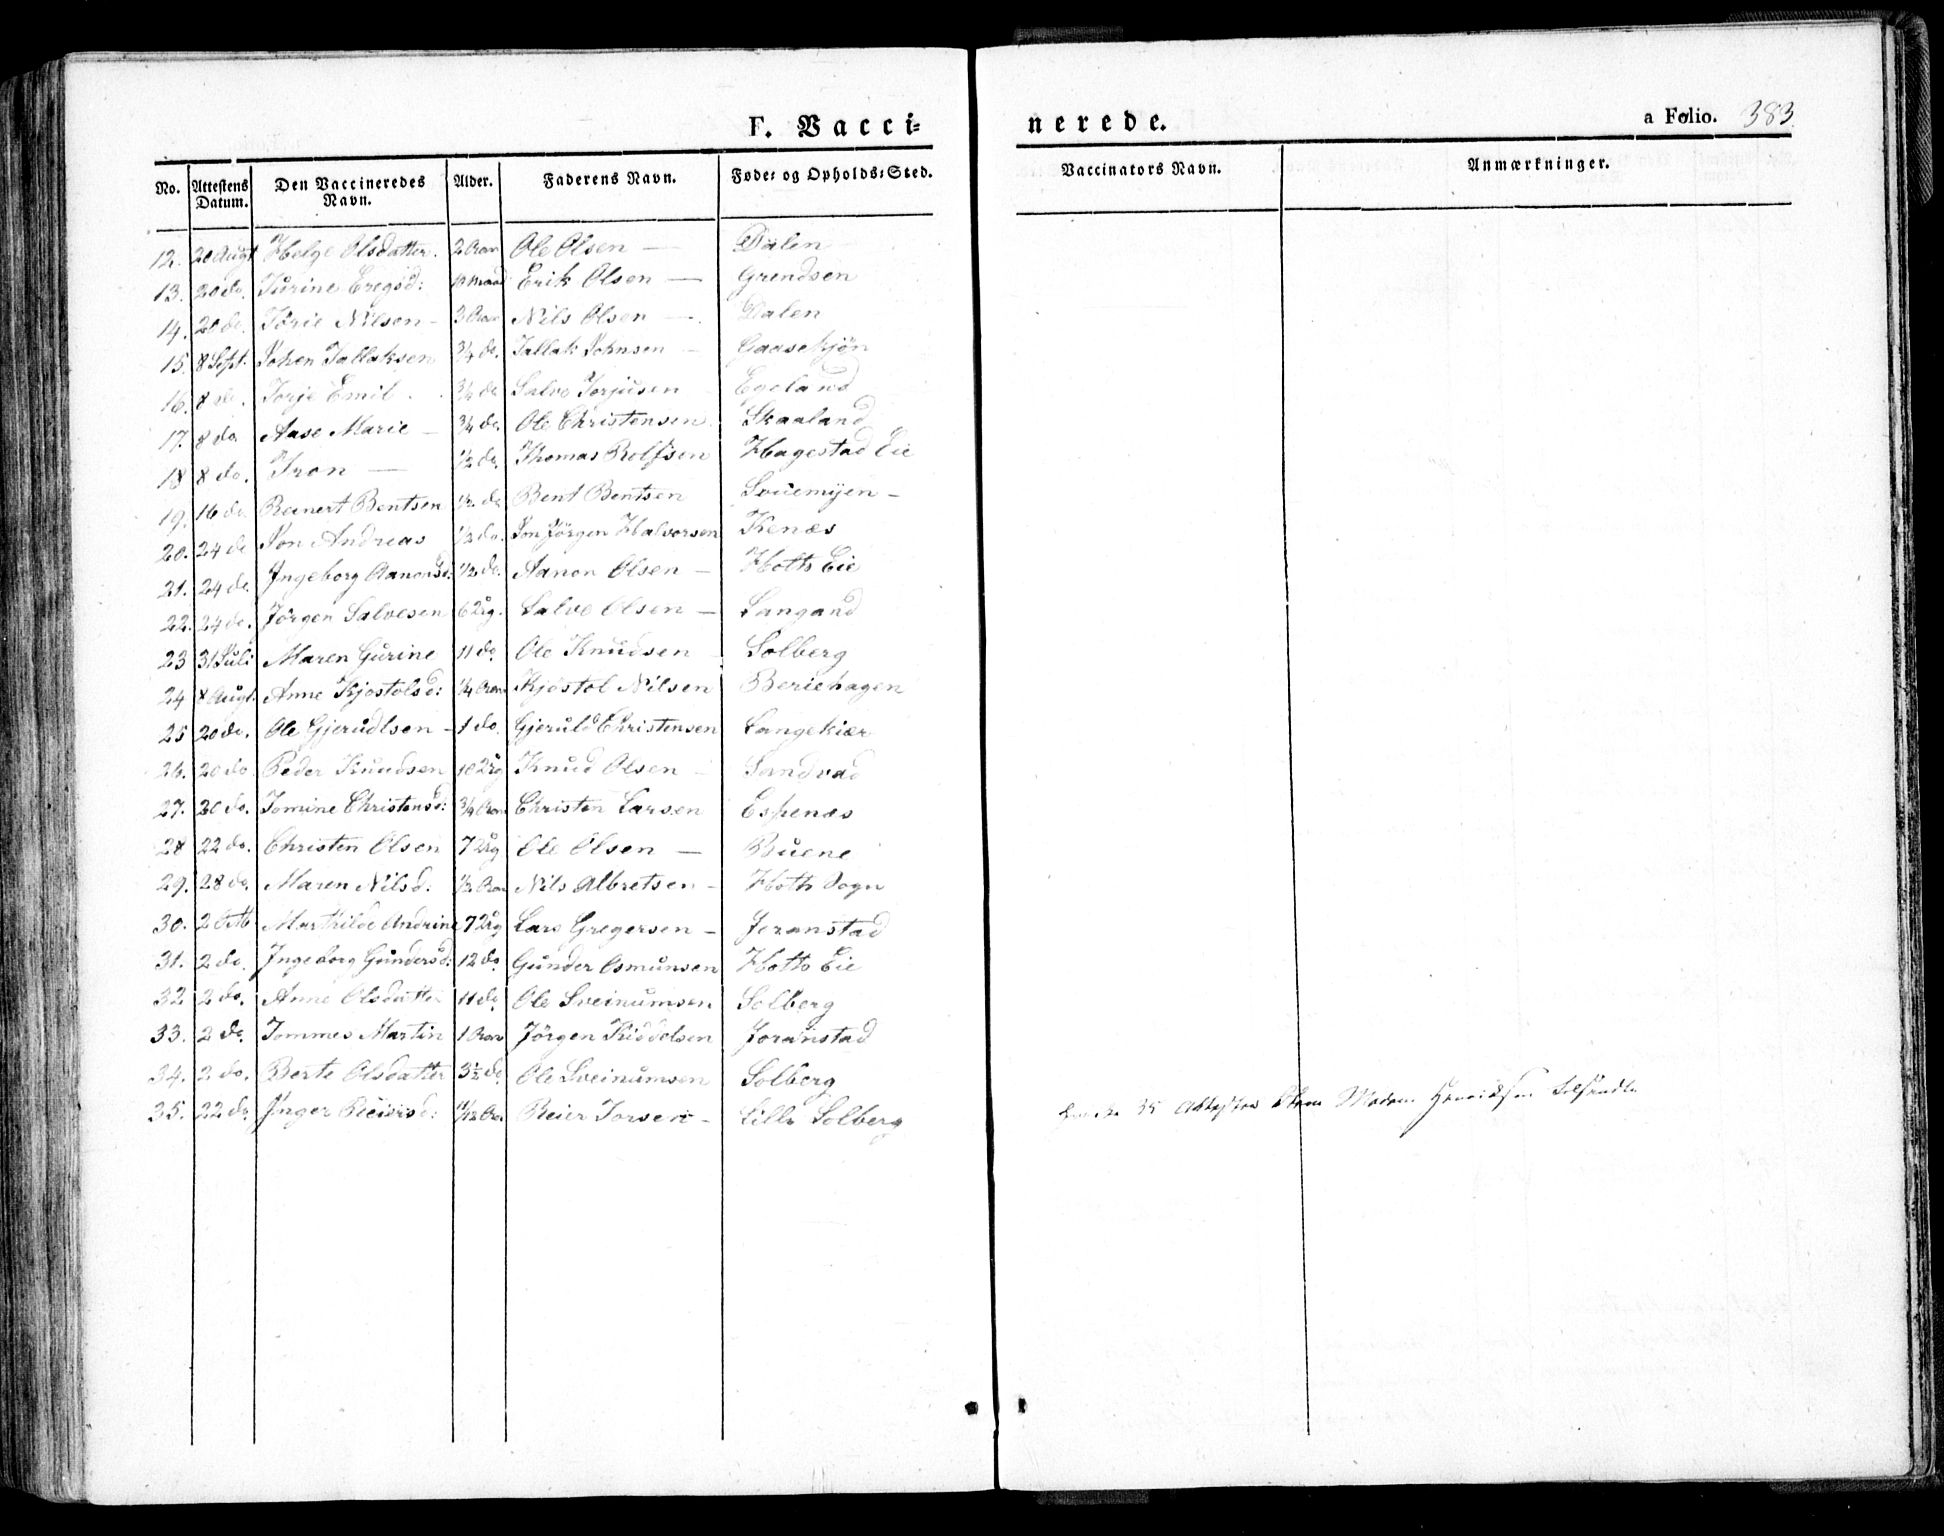 F. Vacci=
nerede.
a Folio. 383
No. Attestens Datum. Den Vaccineredes Navn. Alder. Faderens Navn. Føde= og Opholds=Sted. Vaccinators Navn. Anmærkninger.
12. 20 Augt Helge Olsdatter. 2 Aar Ole Olsen — Dalen
13. 20 do. Turine Eregsd: 10 Maad Erik Olsen — Grendsen
14. 20 do. Torie Nilsen - 3 Aar Nils Olsen — Dalen
15. 8 Sept. Johen Tallaksen 3/4 do. Tallak Johnsen — Gaasekjön
16. 8 do. Torje Emil 3/4 do Salve Torjusen Egeland
17. 8 do. Aase Marie — 3/4 do. Ole Christensen Skaaland
18 8 do. Tron — 1/2 do. Thomas Rolfsen Hagestad Eie
19. 16 do Reinert Bentsen 1/2 do Bent Bentsen -
20. 24 do Jon Andreas 1/2 do. Jon Jörgen Halvorsen Kenæs
21. 24 do. Ingeborg Aanonsd: 1/2 do. Aanon Olsen — Hotts Eie
22. 24 do. Jörgen Salvesen 6 Uig. Salve Olsen — Langand
23 31 Juli Maren Gurine 11 do Ole Knudsen Solberg
24 8 Augt. Anne Kjostolsd: 1/4 Aar Kjöstol Nilsen Beriehagen
25 20 do. Ole Gjerudlsen - 1 do. Gjeruld Christensen Langekiær
26. 20 do Peder Knudsen 10 Uig Knud Olsen - Sandvad
27. 20 do. Tomine Christensd: 3/4 Aar Christen Larsen Espenæs
28 22 do. Christen Olsen 7 Uig Ole Olsen — Buene
29. 28 do. Maren Nilsd: 1/2 Aar Nils Albretsen - Hotts Sogn
30. 2 Octb Marthilde Andrine 7 Uig Lars Gregersen - Joranstad
31. 2 do. Ingeborg Gundersd: 12 do. Gunder Osmunsen Hotts Eie
32 2 do. Anne Olsdatter 11 do Ole Sveinumsen Solberg
33. 2 do. Tommes Martin 1 Aar Jörgen Kiddelsen Joranstad
34. 2 do. Berte Olsdatter 3 1/2 do. Ole Sveinumsen Solberg
35. 22 do. Inger Reiersd: 11/12 Aar Reier Torsen - Lille Solberg
35 Attester Madam Henriksen